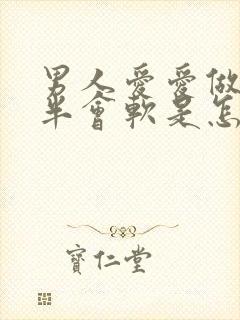 男人愛愛做
半會軟是怎
寶仁堂